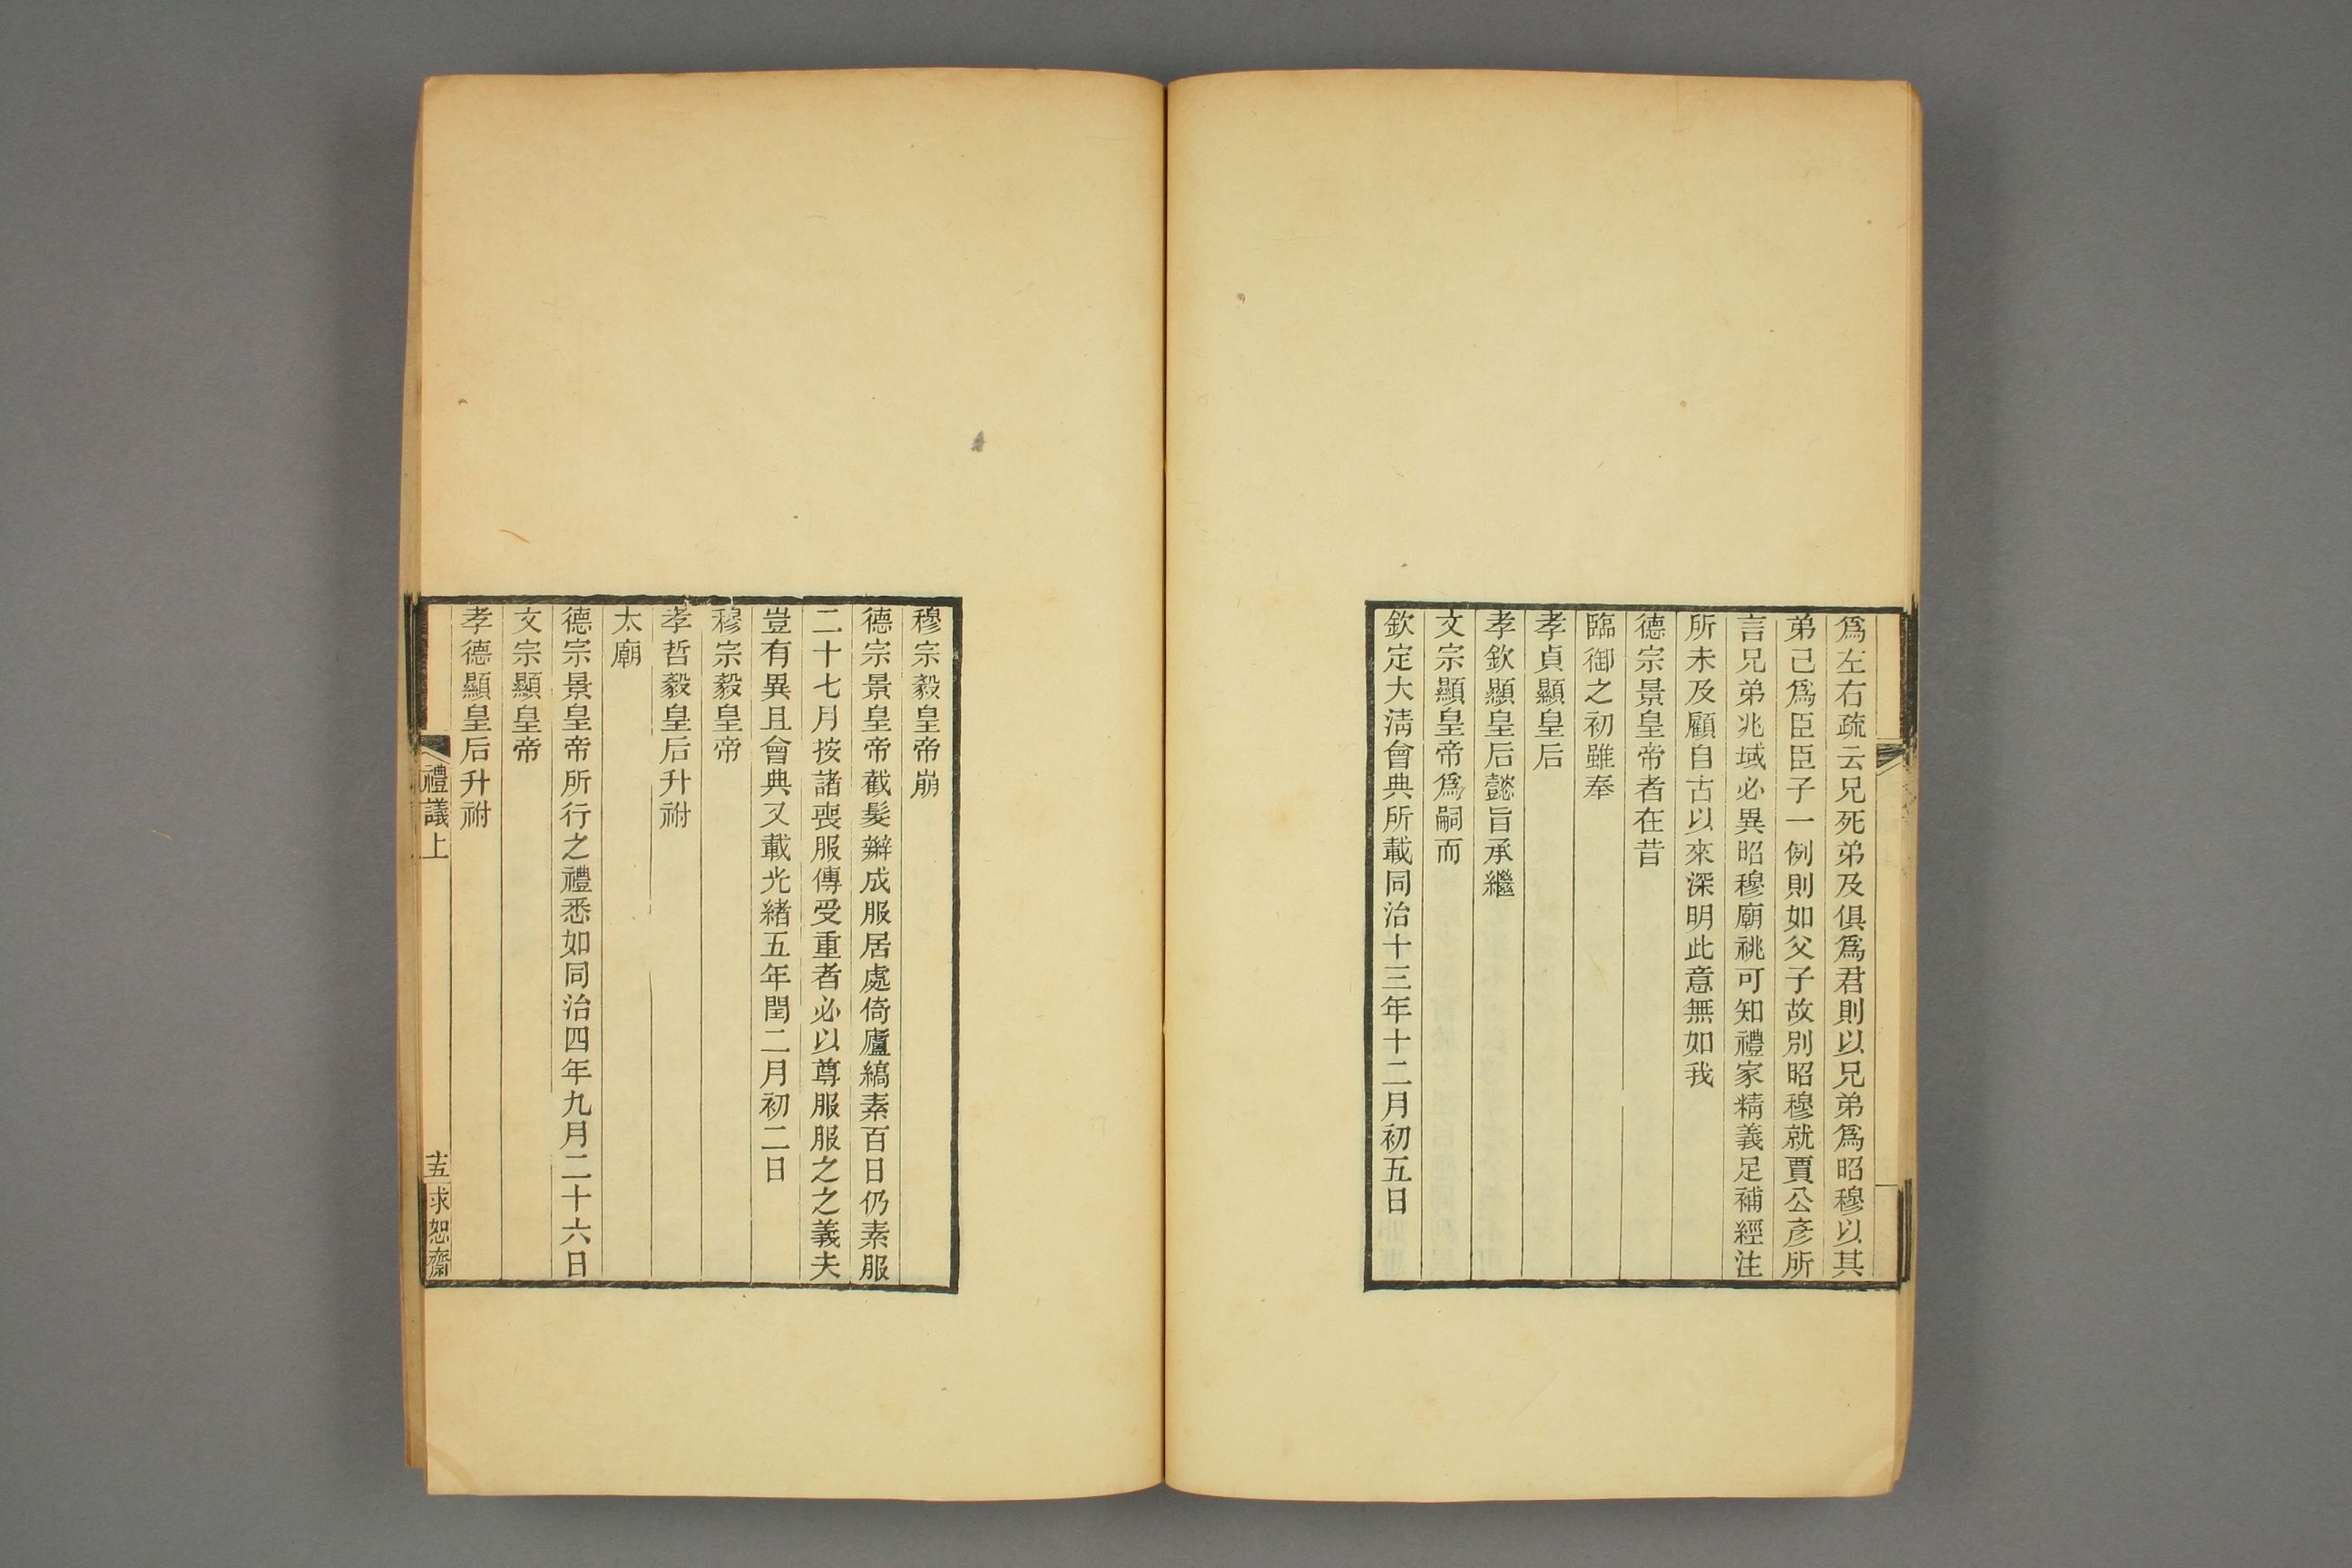 爲左右疏云兄死弟及俱爲君則以兄弟爲昭穆以其
弟己爲臣臣子一例則如父子故別昭穆就賈公彥所
言兄弟兆域必異昭穆廟祧可知禮家精義足補經注
所未及顧自古以來深明此意無如我
德宗景皇帝者在昔
臨御之初雖奉
孝貞顯皇后
孝欽顯皇后懿旨承繼
文宗顯皇帝爲嗣而
欽定大淸會典所載同治十三年十二月初五日
穆宗毅皇帝崩
德宗景皇帝截髮辮成服居處倚廬縞素百日仍素服
二十七月按諸喪服傳受重者必以尊服服之之義夫
豈有異且會典又載光緒五年閏二月初二日
穆宗毅皇帝
孝哲毅皇后升祔
太廟
德宗景皇帝所行之禮悉如同治四年九月二十六日
文宗顯皇帝
孝德顯皇后升祔
禮議上
十五
求恕齋